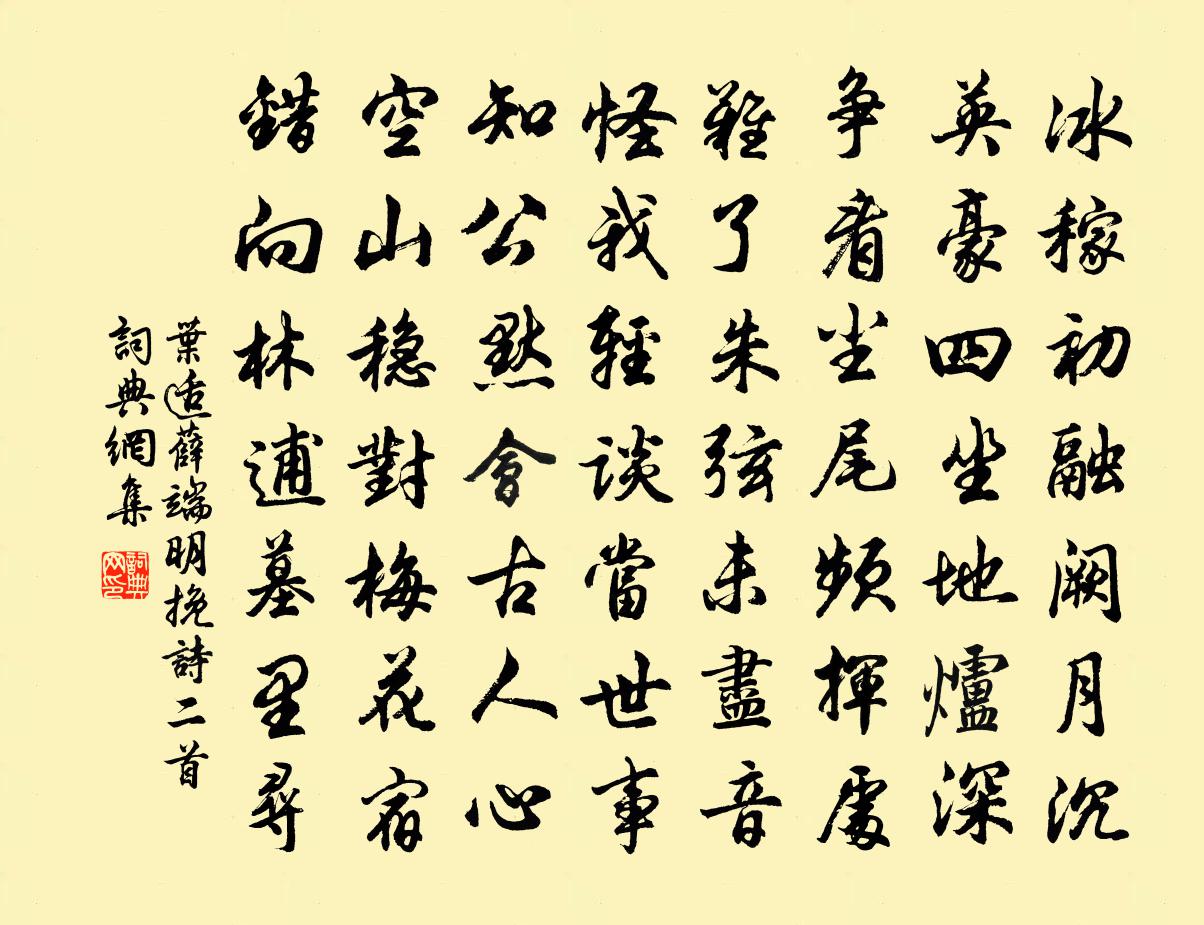 冰稼初融阙月沉
英豪四坐地爐深
争看尘尾频揮處
難了朱弦未盡音
怪我輕談當世事
知公默會古人心
空山穏對梅花宿
錯向林逋墓里尋
葉适薛端明挽詩二首
詞典網集
詞典网印